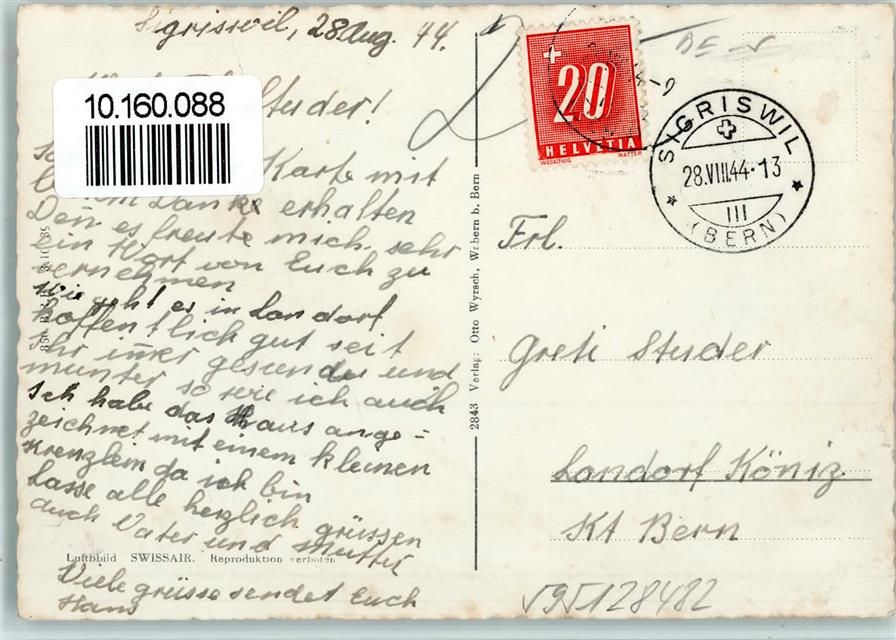 Sigriswil, 28 Aug. 44.
10.160.088
Studer!
Karte mit
Dank erhalten
Den es freute mich sehr
ein Wort von Euch zu
vernehmen
wie geht es in Landorf
hoffentlich gut seit
Ihr immer gesund und
munter so wie ich auch
Ich habe das Haus ange=
zeichnet mit einem kleinen
Kreuzlein da ich bin
Lasse alle herzlich grüssen
auch Vater und Mutter
Luftbbild SWISSAIR. Reproduktion verboten
Viele grüsse sendet Euch
Hans
2843 Verlag: Otto Wyrsch, Wabern b. Bern
20
HELVETIA
SIGRISWIL
28.VIII.44-13
III
(BERN)
Frl.
Greti Studer
Landorf Köniz
Kt Bern